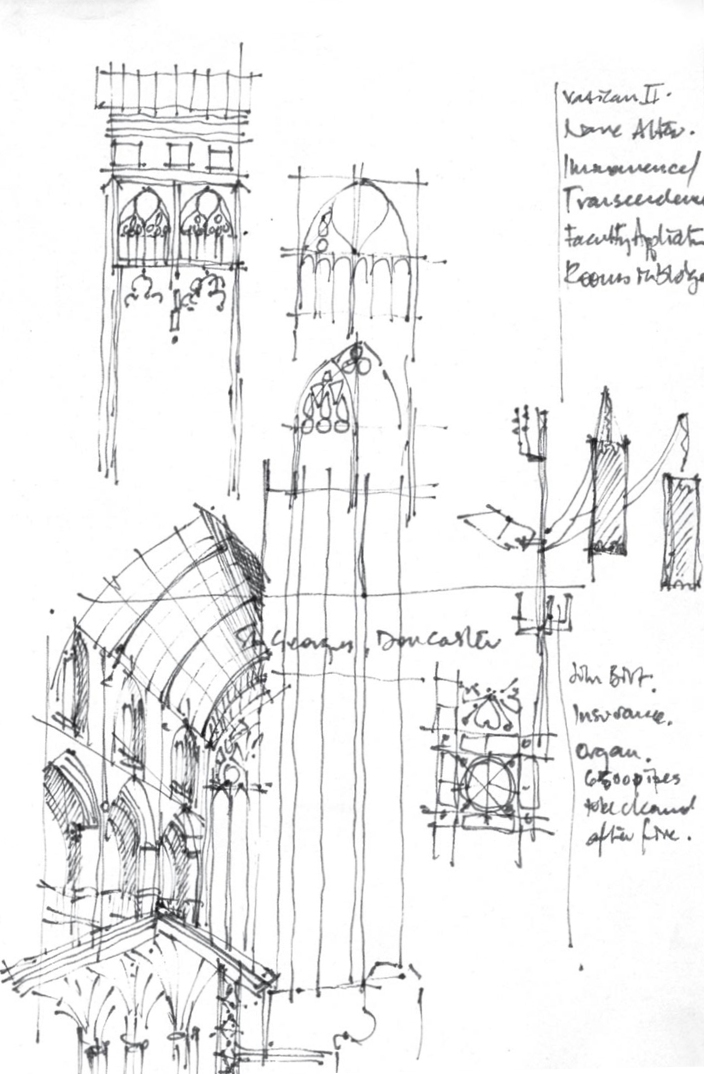 Vatican II.
Nave Altar.
Immanence/
Transcendence
Faculty
Rooms
St Georges, Doncaster
John Birt.
Insurance.
Organ.
6500 pipes
to be cleaned
after fire.